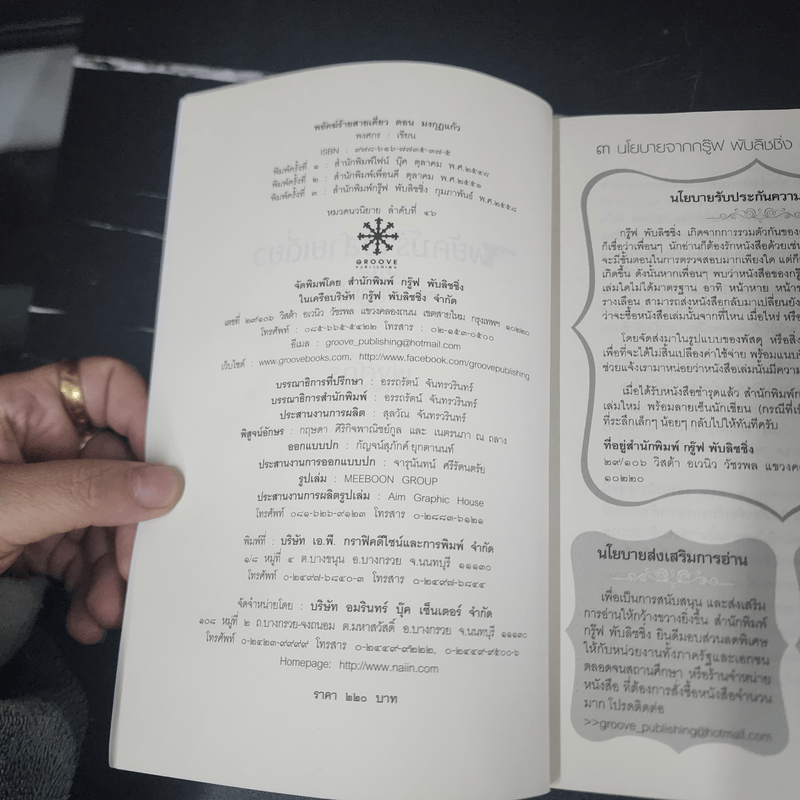 พยัคฆ์ร้ายสายเดี่ยว ตอน มงกุฎแก้ว
พงศกร : เขียน
ISBN : ๙๗๘-๖๑๖-๗๗๓๕-๓๗-๕
พิมพ์ครั้งที่ ๑ : สำนักพิมพ์ไฟน์ บุ๊ค ตุลาคม พ.ศ.๒๕๔๘
พิมพ์ครั้งที่ ๒ : สำนักพิมพ์เพื่อนดี ตุลาคม พ.ศ.๒๕๕๑
พิมพ์ครั้งที่ ๓ : สำนักพิมพ์กรู๊ฟ พับลิชชิ่ง กุมภาพันธ์ พ.ศ.๒๕๕๘
หมวดนวนิยาย ลำดับที่ ๔๖
GROOVE
PUBLISHING
จัดพิมพ์โดย สำนักพิมพ์ กรู๊ฟ พับลิชชิ่ง
ในเครือบริษัท กรู๊ฟ พับลิชชิ่ง จำกัด
เลขที่ ๒๙/๑๐๖ วิสต้า อเวนิว วัชรพล แขวงคลองถนน เขตสายไหม กรุงเทพฯ ๑๐๒๒๐
โทรศัพท์ : ๐๘๕-๖๖๕-๕๔๒๒ โทรสาร : ๐๒-๑๕๓-๐๕๐๐
อีเมล : groove_publishing@hotmail.com
เว็บไซต์ : www.groovebooks.com, http://www.facebook.com/groovepublishing
บรรณาธิการที่ปรึกษา : อรรถรัตน์ จันทรวรินทร์
บรรณาธิการสำนักพิมพ์ : อรรถรัตน์ จันทรวรินทร์
ประสานงานการผลิต : สุลวัณ จันทรวรินทร์
พิสูจน์อักษร : กฤษดา ศิริกิจพาณิชย์กูล และ เนตรนภา ณ ถลาง
ออกแบบปก : กัญจน์สุภัคค์ ยุกตานนท์
ประสานงานการออกแบบปก : จารุนันทน์ ศรีรัตนตรัย
รูปเล่ม : MEEBOON GROUP
ประสานงานการผลิตรูปเล่ม : Aim Graphic House
โทรศัพท์ ๐๘๑-๖๒๖-๙๑๒๓ โทรสาร ๐-๒๘๘๓-๖๑๒๑
พิมพ์ที่ : บริษัท เอ.พี. กราฟิคดีไซน์และการพิมพ์ จำกัด
๑/๘ หมู่ที่ ๔ ต.บางขนุน อ.บางกรวย จ.นนทบุรี ๑๑๑๓๐
โทรศัพท์ ๐-๒๔๙๗-๖๘๔๐-๓ โทรสาร ๐-๒๔๙๗-๖๘๔๔
จัดจำหน่ายโดย : บริษัท อมรินทร์ บุ๊ค เซ็นเตอร์ จำกัด
๑๐๘ หมู่ที่ ๒ ถ.บางกรวย-จงถนอม ต.มหาสวัสดิ์ อ.บางกรวย จ.นนทบุรี ๑๑๑๓๐
โทรศัพท์ ๐-๒๔๒๓-๙๙๙๙ โทรสาร ๐-๒๔๔๙-๙๒๒๒, ๐-๒๔๔๙-๙๕๐๐-๖
Homepage: http://www.naiin.com
ราคา ๒๒๐ บาท
๓ นโยบายจากกรู๊ฟ พับลิชชิ่ง
นโยบายรับประกันความ
กรู๊ฟ พับลิชชิ่ง เกิดจากการรวมตัวกันของ
ก็เชื่อว่าเพื่อนๆ นักอ่านก็ต้องรักหนังสือด้วยเช่น
จะมีขั้นตอนในการตรวจสอบมากเพียงใด แต่ก็
เกิดขึ้น ดังนั้นหากเพื่อนๆ พบว่าหนังสือของกรู๊
เล่มใดไม่ได้มาตรฐาน อาทิ หน้าหาย หน้าข
รางเลือน สามารถส่งหนังสือกลับมาเปลี่ยนยัง
ว่าจะซื้อหนังสือเล่มนั้นจากที่ไหน เมื่อไหร่ หรือ
โดยจัดส่งมาในรูปแบบของพัสดุ หรือสิ่ง
เพื่อที่จะได้ไม่สิ้นเปลืองค่าใช้จ่าย พร้อมแนบ
ช่วยแจ้งเรามาหน่อยว่าหนังสือเล่มนั้นมีความ
เมื่อได้รับหนังสือชำรุดแล้ว สำนักพิมพ์ก
เล่มใหม่ พร้อมลายเซ็นนักเขียน (กรณีที่เ
ที่ระลึกเล็กๆ น้อยๆ กลับไปให้ทันทีครับ
ที่อยู่สำนักพิมพ์ กรู๊ฟ พับลิชชิ่ง
๒๙/๑๐๖ วิสต้า อเวนิว วัชรพล แขวงค
๑๐๒๒๐
นโยบายส่งเสริมการอ่าน
เพื่อเป็นการสนับสนุน และส่งเสริม
การอ่านให้กว้างขวางยิ่งขึ้น สำนักพิมพ์
กรู๊ฟ พับลิชชิ่ง ยินดีมอบส่วนลดพิเศษ
ให้กับหน่วยงานทั้งภาครัฐและเอกชน
ตลอดจนสถานศึกษา หรือร้านจำหน่าย
หนังสือ ที่ต้องการสั่งซื้อหนังสือจำนวน
มาก โปรดติดต่อ
>>groove_publishing@hotmail.com